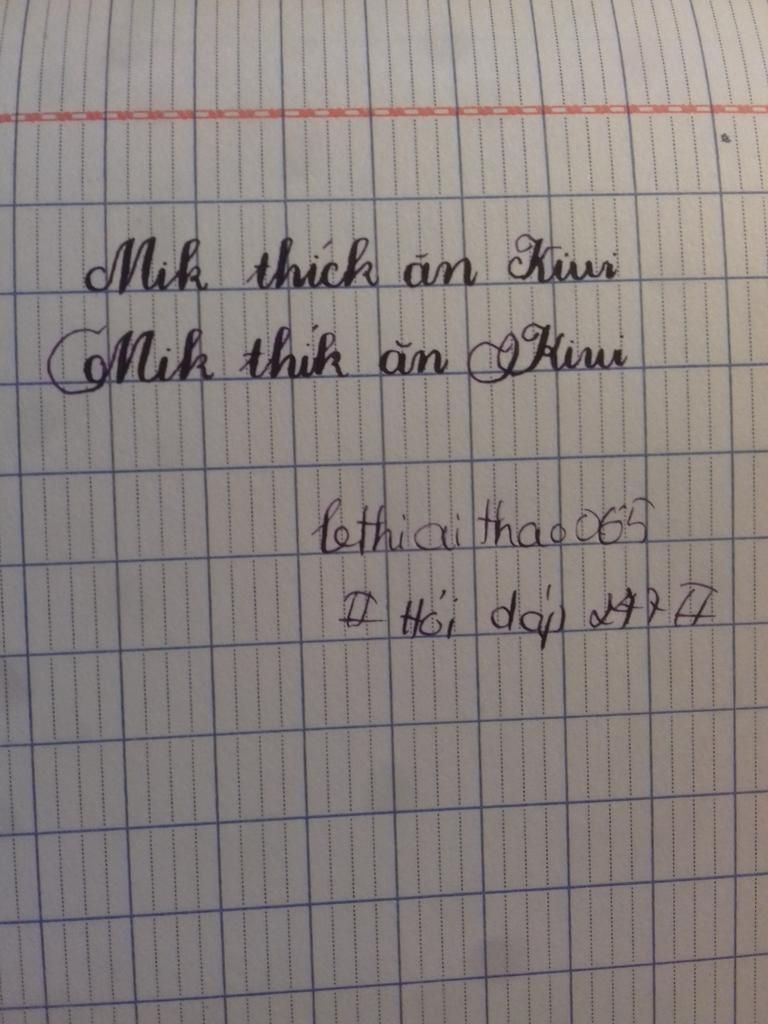 Mik thích ăn Kiwi
Mik thík ăn Kiwi
lethiaithao065
II Hỏi đáp 247 II